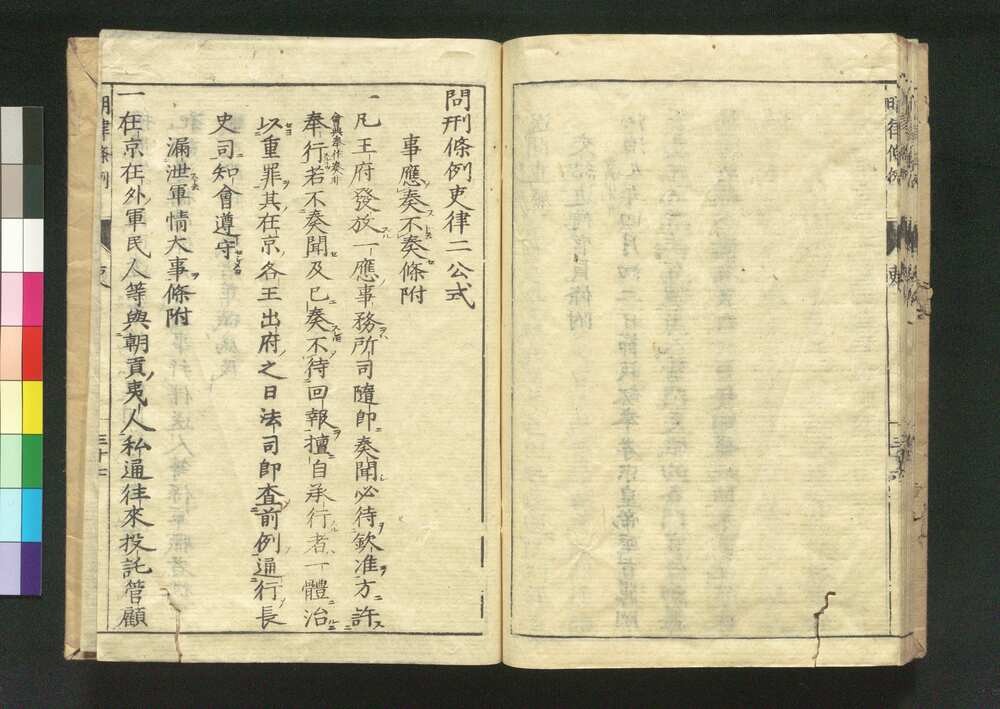 問刑條例吏律二公式
事應奏不奏條附
一凡王府發放一應事務所司隨即奏聞必待欽准方許
奉行若不奏聞及已奏不待回報擅自承行者一體治
以重罪其在京各王出府之日法司即查前例通行長
史司知會遵守
漏泄軍情大事條附
一在京在外軍民人等與朝貢夷人私通往來投託管顧